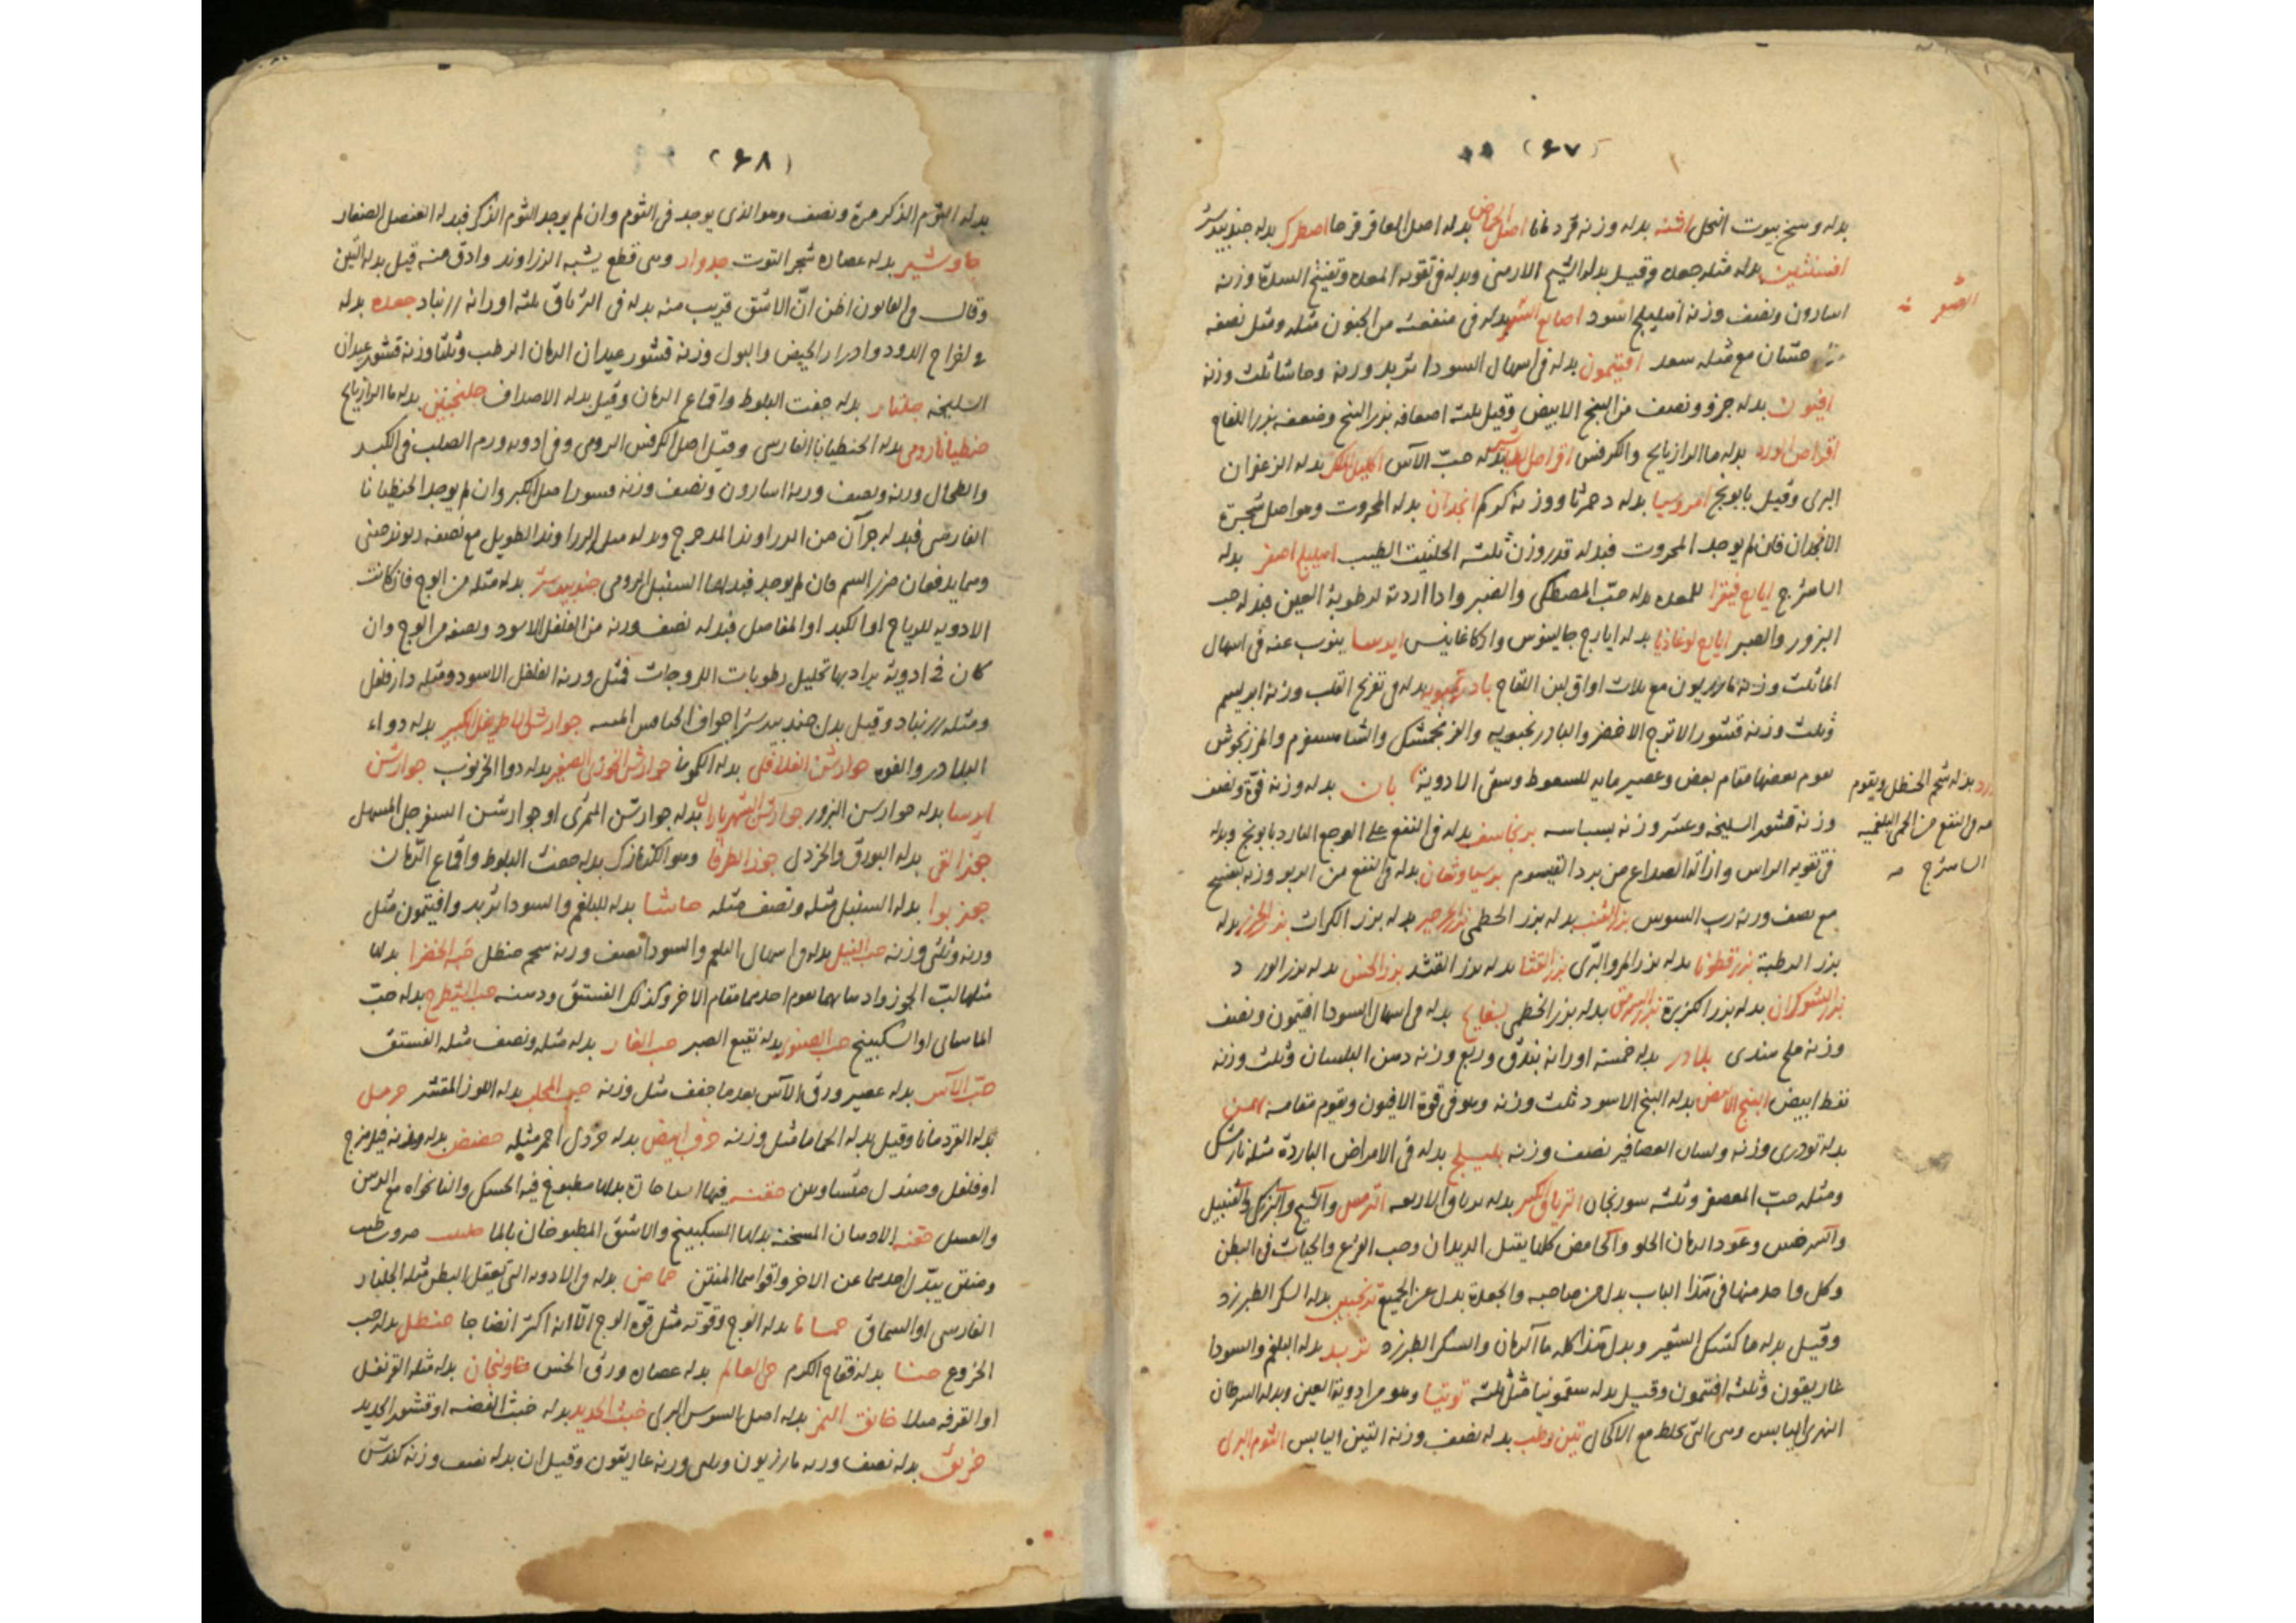 (٦٧)
بدله وسخ بيوت النحل اشنه بدله وزنه قردمانا اصل الحماض بدله اصل العاقرقرحا اصطرك بدله جندبيدستر
افسنتين بدله مثله جعده وقيل بدله الشيح الارمنى وبدله فى تقوية المعده وتفتيح السدة وزنه
اسارون ونصف وزنه اهليلج اسود اصابع الصفر بدله فى منفعته من الجنون مثله ومثل نصفه
مع مثله سعد افتيمون بدله فى اسهال السودا تربد وزنه وحاشا ثلث وزنه
افيون بدله جزو ونصف من البنج الابيض وقيل ثلثة اضعافه بزر البنج وضعفه بزر اللفاح
اقراص الورد بدله ما الرازيانج والكرفس اقراص بدله حبّ الآس اكليل الملك بدله الزعفران
البرى وقيل بابونج امروسيا بدله دحمرثا ووزنه كركم انجدان بدله المحروت وهو اصل شجرة
الانجدان فان لم يوجد المحروت فبدله قدر وزن ثلثه الحلتيت الطيب اهليلج اصفر بدله
ايارج فيقرا للمعده بدله حبّ المصطكى والصبر واذا اردته لرطوبة العين فبدله حب
البزور والصبر ايارج لوغاذيا بدله ايارج جالينوس واركاغانيس ايرسا ينوب عنه فى اسهال
الما ثلث وزنه مازريون مع ثلاث اواق لبن اللقاح بادرنجبويه بدله فى تفريح القلب وزنه ابريسم
وثلث وزنه قشور الاترج الاخضر والبادرنجبويه والفرنجمشك والشاهسفرم والمرزنجوش
يقوم بعضها مقام بعض وعصير مايه للسعوط وسقى الادوية بان بدله وزنه فوّة ونصف
وزنه قشور السليخه وعشر وزنه بسباسه برنجاسف بدله فى النفع على الوجع البارد بابونج وبدله
فى تقوية الراس وازالة الصداع من برد القيسوم برسياوشان بدله فى النفع من الربو وزنه بنفسج
مع نصف وزنه رب السوس بزر بدله بزر الخطمى بزر الجرجير بدله بزر الكراث بزر بدله
بزر الرطبة بزر قطونا بدله بزر المرو البرّى بزر القثا بدله بزر القثد بزر الخس بدله بزر الورد
بزر الشوكران بدله بزر الكزبرة بزر السرمق بدله بزر الخطمى بسفايج بدله فى اسهال السودا افتيمون ونصف
وزنه ملح هندى بلادر بدله خمسة اوزانه بندق وربع وزنه دهن البلسان وثلث وزنه
نفط ابيض البنج الابيض بدله البنج الاسود ثلث وزنه وهو فى قوة الافيون ويقوم مقامه بهمن
بدله تودرى وزنه ولسان العصافير نصف وزنه بليلج بدله فى الامراض الباردة مثله نارمشك
ومثله حبّ العصفر وثلثه سورنجان الترياق الكبير بدله ترياق الاربعه الترمس والشيح والبرنك والقنبيل
والسرخس وعود الرمان الحلو والحامض كلها يقتل الديدان وحب القرع والحيات فى البطن
وكل واحد منها فى هذا الباب بدل من صاحبه والجعدة بدل عن الجميع ترنجبين بدله السكر الطبرزد
وقيل بدله ما كشك الشعير وبدل هذا كله ما الرمان والسكر الطبرزد تربد بدله البلغم والسودا
غاريقون وثلثه افتيمون وقيل بدله سقمونيا مثل ثلثه توتيا وهو من ادوية العين وبدله السرطان
النهرى اليابس وهى التى تخلط مع الاكحال تين رطب بدله نصف وزنه التين اليابس الثوم البرى
الصفر
بدله شحم الحنظل ويقوم
فى النفع من الحمى البلغميه
(٦٨)
بدله الثوم الذكر مرة ونصف وهو الذى يوجد فى الثوم وان لم يوجد الثوم الذكر فبدله العنصل الصغار
جاوشير بدله عصارة شجر التوت جدوار وهى قطع يشبه الزراوند وادق منه قيل بدله التين
وقال فى القانون اظن انّ الاشق قريب منه بدله فى الترياق ثلثة اوزانه زرنباد جعده بدله
فى اخراج الدود وادرار الحيض والبول وزنه قشور عيدان الرمان الرطب وثلثا وزنه قشور عيدان
السليخه جلنار بدله جفت البلوط واقماع الرمان وقيل بدله الاصداف جلنجبين بدله ما الرازيانج
جنطيانا رومى بدله الجنطيانا الفارسى وقيل اصل الكرفس الرومى وفى ادويه ورم الصلب فى الكبد
والطحال وزنه ونصف وزنه اسارون ونصف وزنه قشور اصل الكبر وان لم يوجد الجنطيانا
الفارسى فبدله جزآن من الزراوند المدحرج وبدله مثل الزراوند الطويل مع نصفه ريوند صينى
وهما يدفعان ضرر السم فان لم يوجد فبدلهما السنبل الرومى جندبيدستر بدله مثله من الوج فان كانت
الادويه للرياح او الكبد او المفاصل فبدله نصف وزنه من الفلفل الاسود ونصفه من الوج وان
كان فى ادوية يراد بها تحليل رطوبات اللزوجات فمثل وزنه الفلفل الاسود ومثله دارفلفل
ومثله زرنباد وقيل بدل جندبيدستر اجواف جوارش الاطريفل الكبير بدله دواء
البلادر والفوه جوارش الفلافلى بدله الكمونى جوارش الخوزى الصغير بدله دوا الخرنوب جوارش
بدله جوارش البزور جوارش الشهرياران بدله جوارش التمرى او جوارش السفرجل المسهل
جوز القى بدله البورق والخردل جوز الطرفا وهو الكزمازك بدله جفت البلوط واقماع الرّمان
جوز بوا بدله السنبل مثله ونصف مثله حاشا بدله للبلغم والسودا تربد وافتيمون مثل
وزنه وثلثى وزنه حب النيل بدله فى اسهال البلغم والسودا نصف وزنه شحم حنظل حبّة الخضرا بدلها
مثلها لبّ الجوز وادهانهما يقوم احدهما مقام الاخر وكذلك الفستق ودهنه حب الشيطرج بدله حبّ
او السكبينج حب الصنوبر بدله نقيع الصبر حب الغار بدله مثله ونصف مثله الفستق
حبّ الآس بدله عصير ورق الآس بعد ما جفف مثل وزنه حبّ المحلب بدله اللوز المقشر حرمل
بدله القردمانا وقيل بدله الحاما مثل وزنه حرف ابيض بدله خردل احمر مثله حضض بدله وزنه فيلزهرج
او فلفل وصندل متساويين حقنه بدلها مطبوخ فيه الحسك والنانخواه مع الدهن
والعسل حقنه الادهان المسخنه بدلها السكبينج والاشق المطبوخان بالما
يبدّل احدهما عن الاخر واقواهما المنتن حماض بدله فى الادويه التى تعقل البطن مثله الجلنار
الفارسى او السماق حماما بدله الوج وقوّته مثل قوّة الوج الّا انه اكثر انضاجا حنظل بدله حب
الخروع حنا بدله فقاح الكرم حى العالم بدله عصاره ورق الخس خاولنجان بدله مثله القرنفل
او القرفه مثلا خانق النمر بدله اصل السوس البرى خبث الحديد بدله خبث الفضه او قشور الحديد
خربق بدله نصف وزنه مازريون وثلثى وزنه غاريقون وقيل ان بدله نصف وزنه كندش